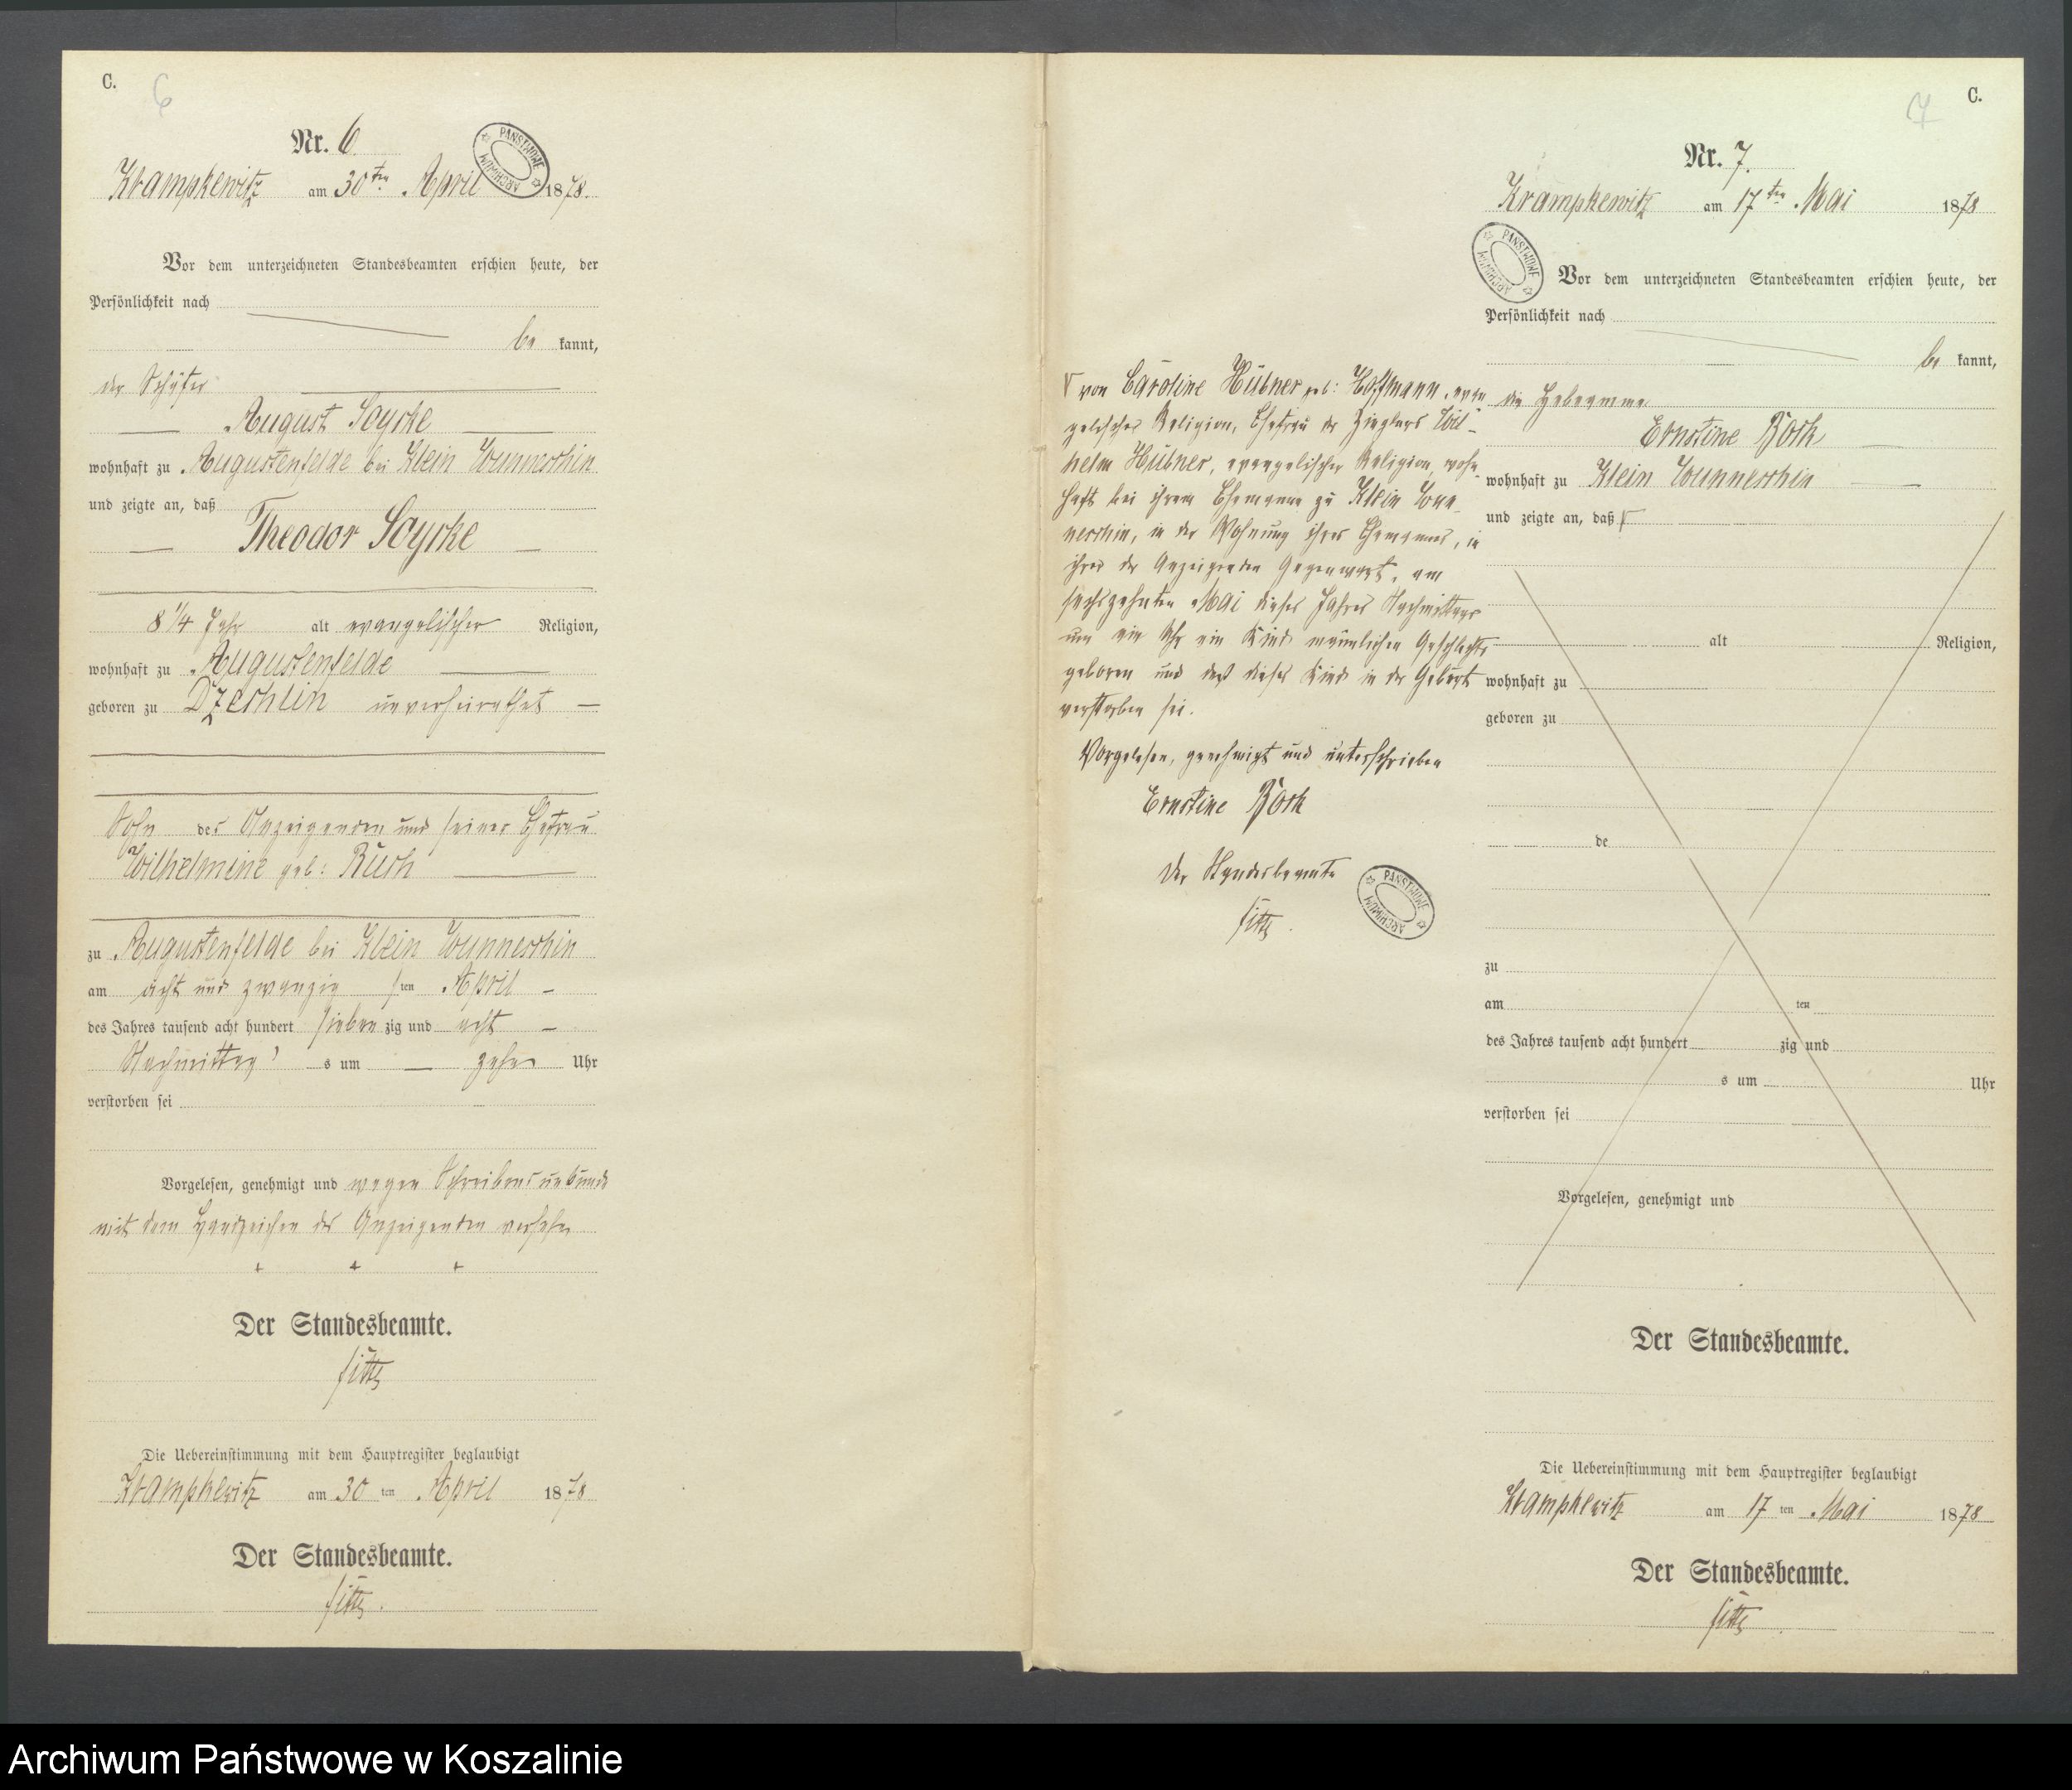 C.
6
Nr. 6
PAŃSTWOWE ARCHIWUM
Krampkewitz am 30ten April 1878.
Vor dem unterzeichneten Standesbeamten erschien heute, der
Persönlichkeit nach
be kannt,
der Schäfer
August
wohnhaft zu Augustenfelde bei Klein Wunneschin
und zeigte an, daß
Theodor
8 1/4 Jahr alt evangelischer Religion,
wohnhaft zu Augustenfelde
geboren zu Dzechlin unverheirathet
Sohn des Anzeigenden und seiner Ehefrau
Wilhelmine geb: Busch
zu Augustenfelde bei Klein Wunneschin
am acht und zwanzig sten April
des Jahres tausend acht hundert sieben zig und acht
Nachmittag s um zehn Uhr
verstorben sei
Vorgelesen, genehmigt und wegen Schreibensunkunde
mit dem Handzeichen des Anzeigenden versehen
+ + +
Der Standesbeamte.
Die Uebereinstimmung mit dem Hauptregister beglaubigt
Krampkewitz am 30 ten April 1878
Der Standesbeamte.
C.
7
Nr. 7.
Krampkewitz am 17ten Mai 1878
PAŃSTWOWE ARCHIWUM
Vor dem unterzeichneten Standesbeamten erschien heute, der
Persönlichkeit nach
be kannt,
die Hebeamme
Ernstine
wohnhaft zu Klein Wunneschin
und zeigte an, daß
alt Religion,
wohnhaft zu
geboren zu
de
zu
am ten
des Jahres tausend acht hundert zig und
s um Uhr
verstorben sei
Vorgelesen, genehmigt und
Der Standesbeamte.
Die Uebereinstimmung mit dem Hauptregister beglaubigt
Krampkewitz am 17 ten Mai 1878
Der Standesbeamte.
von Caroline Hübner geb: Hoffmann, evan
gelischer Religion, Ehefrau des Zieglers Wil-
helm Hübner, evangelischer Religion, wohn-
haft bei ihrem Ehemanne zu Klein Wun-
neschin, in der Wohnung ihres Ehemannes, in
ihrer der Anzeigenden Gegenwart, am
sechszehnten Mai dieses Jahres Nachmittags
um ein Uhr ein Kind männlichen Geschlechts
geboren und daß dieses Kind in der Geburt
verstorben sei.
Vorgelesen, genehmigt und unterschrieben
Ernstine
Der Standesbeamte
PAŃSTWOWE ARCHIWUM
Archiwum Państwowe w Koszalinie